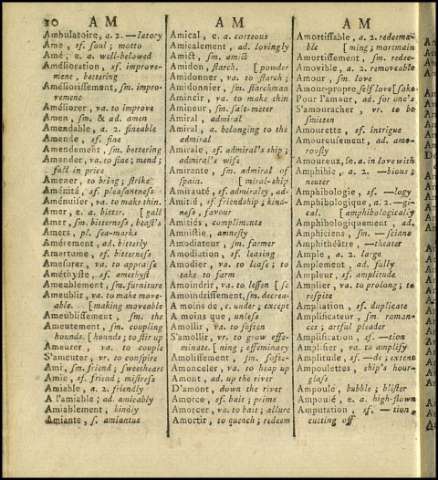 20 A M
Ambulatoire, a. 2. —latory
Ame, sf. soul; motto
Amé, e. a. well-beloved
Amélioration, sf. improve-
ment, bettering
Améliorissement, sm. impro-
vement
Améliorer, va. to improve
Amen, sm. & ad. amen
Amendable, a. 2. fineable
Amende, sf. fine
Amendement, sm. bettering
Amender, va. to fine; mend;
fall in price
Amener, to bring; strike
Aménité, sf. pleasantness
Aménuiser, va. to make thin.
Amer, e. a. bitter. [gall
Amer, sm. bitterness, beast's
Amers, pl. sea-marks
Amérement, ad. bitterly
Amertume, sf. bitterness
Amesurer, va. to appraise
Améthyste, sf. amethyst
Ameublement, sm. furniture
Ameublir, va. to make move-
able. [making moveable
Ameublissement, sm. the
Ameutement, sm. coupling
hounds. [hounds; to stir up
Ameuter, va. to couple
S'ameuter, vr. to conspire
Ami, sm. friend; sweetheart
Amie, sf. friend; mistress
Amiable, a. 2. friendly
A l'amiable, ad. amicably
Amiablement, kindly
Amiante, s. amiantus
A M
Amical, e. a. corteous
Amicalement, ad. lovingly
Amict, sm. amict
Amidon, starch. [powder
Amidonner, va. to starch;
Amidonnier, sm. starchman
Amincir, va. to make thin
Amineur, sm. salt-meter
Amiral, admiral
Amiral, a. belonging to the
admiral
Amirale, sf. admiral's ship;
admiral's wife
Amirante, sm. admiral of
Spain. [miral-ship
Amirauté, sf. admiralty, ad-
Amitié, sf. friendship; kind-
ness, favour
Amitiés, compliments
Amnistie, amnesty
Amodiateur, sm. farmer
Amodiation, sf. leasing
Amodier, va. to lease; to
take to farm
Amoindrir, va. to lessen [se
Amoindrissement, sm. decrea-
A moins de, c. under; except
A moins que, unless
Amollir, va. to soften
S'amollir, vr. to grow effe-
minate. [ning; effeminacy
Amolissement, sm. softe-
Amonceler, va. to heap up
Amont, ad. up the river
D'amont, down the river
Amorce, sf. bait; prime
Amorcer, va. to bait; allure
Amortir, to quench; redeem
A M
Amortissable, a. 2. redeema-
ble [ming; mortmain
Amortissement, sm. redee-
Amovible, a. 2. removeable
Amour, sm. love
Amour-propre self love [sake
Pour l'amour, ad. for one's
S'amouracher, vr. to be
smitten
Amourette, sf. intrigue
Amoureusement, ad. amo-
rously
Amoureux, se. a. in love with
Amphibie, a. 2. —bious;
neuter
Amphibologie, sf. —logy
Amphibologique, a. 2. —gi-
cal. [amphibologically
Amphibologiquement, ad.
Amphisciens, sm. —sciens
Amphithéâtre, —theater
Ample, a. 2. large
Amplement, ad. fully
Ampleur, sf. amplitude
Amplier, va. to prolong; to
respite
Ampliation, sf. duplicate
Amplificateur, sm. roman-
cer; artful pleader
Amplification, sf. —tion
Amplifier, va. to amplify
Amplitude, sf. —de; extent
Ampoulettes ship's hour-
glass
Ampoule, bubble; blister
Ampoulé, e. a. high-flown
Amputation, sf. —tion,
cutting off